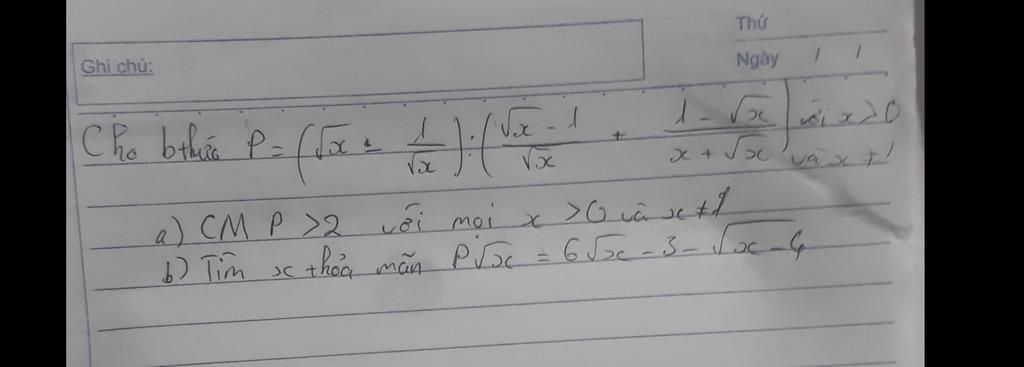 Thứ
Ghi chú:
Ngày / /
Cho bthức P = (√x - 1/√x) : ((√x - 1)/√x + (1 - √x)/(x + √x)) với x > 0
và x ≠ 1
a) CM P > 2 với mọi x > 0 và x ≠ 1
b) Tìm x thỏa mãn P√x = 6√x - 3 - √(x - 4)